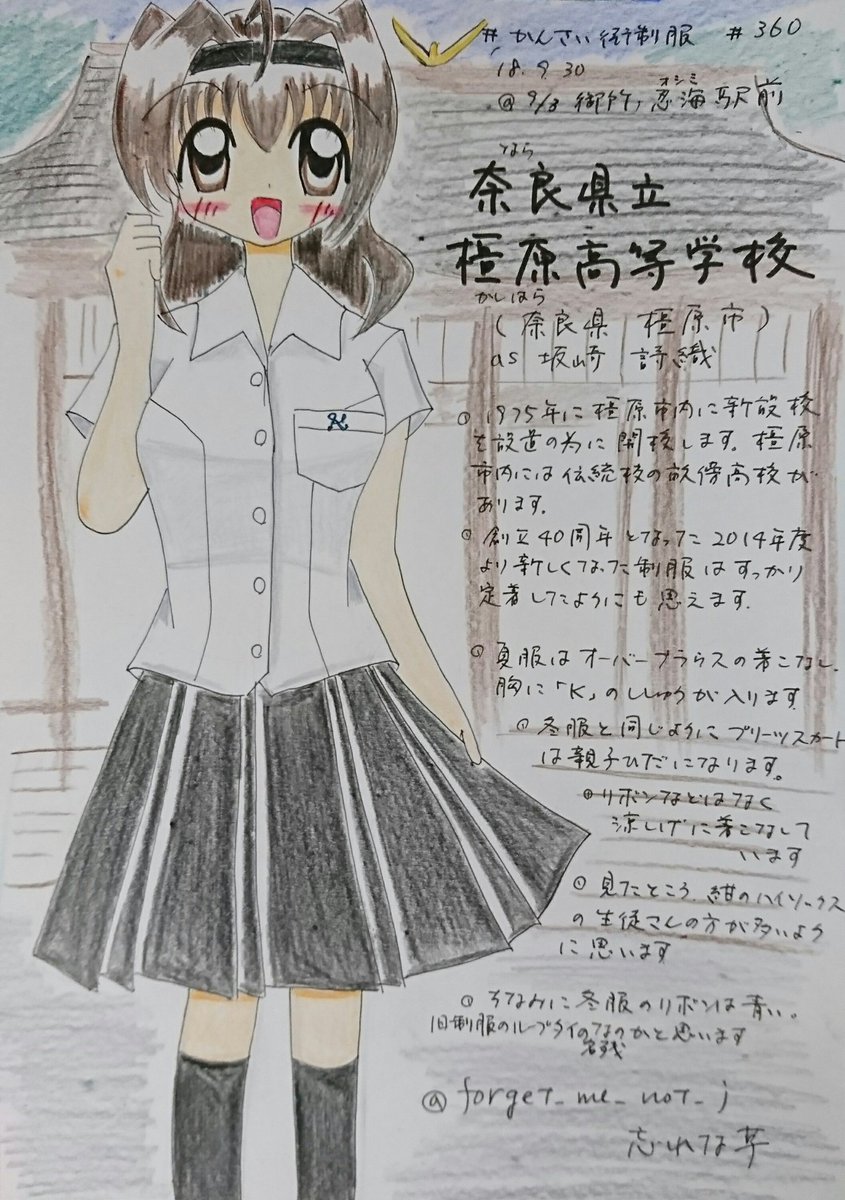 #かんさい街制服 #360
'18.9.30
@9/3 御所, 忍海駅前
オシミ
なら
奈良県立
橿原高等学校
かしはら
(奈良県 橿原市)
as 坂崎 詩織
1975年に橿原市内に新設校
を設置の為に開校します。橿原
市内には伝統校の畝傍高校が
あります。
創立40周年となった2014年度
より新しくなった制服はすっかり
定着したようにも思えます.
夏服はオーバーブラウスの着こなし.
胸に「K」のししゅうが入ります
冬服と同じようにプリーツスカート
は親子ひだになります。
リボンなどはなく
涼しげに着こなして
います
見たところ, 紺のハイソックス
の生徒さんの方が多いよう
に思います
ちなみに冬服のリボンは青い。
旧制服のループタイのなのかと思います
名残
@forget_me_not_j
忘れな草
K